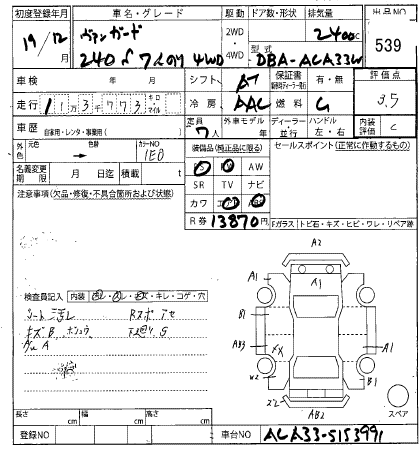 初度登録年月 車名・グレード 駆動 ドア数・形状 排気量 出品NO
19/12月 ヴァンガード 2WD・4WD 2400cc 539
240S 7人のり 4WD 型式 DBA-ACA33W
車検 年 月 シフト AT 保証書 有・無 評価点
走行 11万3千773 キロ・マイル 冷房 AAC 燃料 G 3.5
車歴 自家用・レンタ・事業用( ) 定員 7人 外車モデル年 年 ディーラー・並行 ハンドル 左・右 内装 C
外色 元色 色替 → カラーNO 1E0 装備品(純正品に限る) セールスポイント(正常に作動するもの)
名義変更期限 月 日迄 積載 t
注意事項(欠品・修復・不具合箇所および状態)
AW
SR TV ナビ
カワ
R券 13870円
Fガラス トビ石・キズ・ヒビ・ワレ・リペア跡
検査員記入 内装 キレ・コゲ・穴
シート 汚レ
キズ B
A
A2
A1
A1
B1
AB3
XX
A1
W2
B1
AB2
スペア
長さ cm 幅 cm 高さ cm
登録NO 車台NO ACA33-5153991